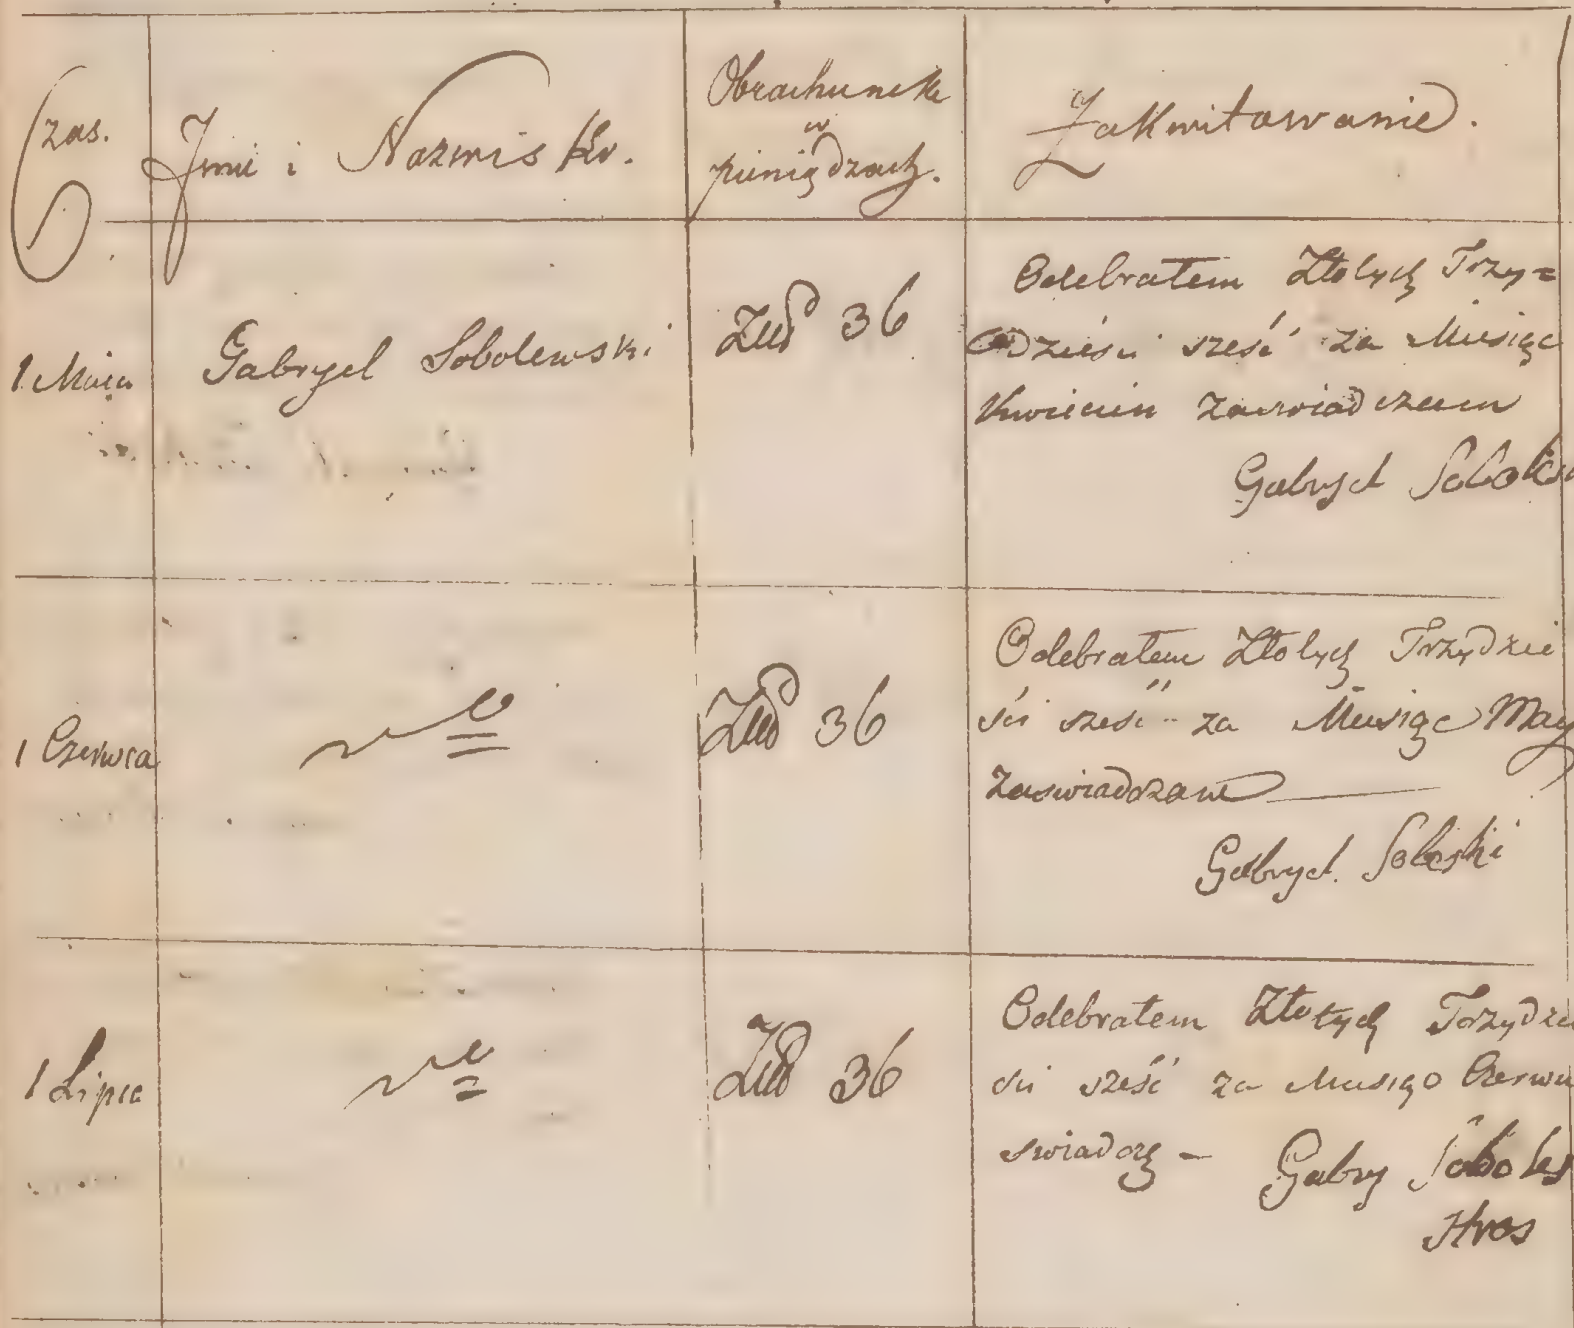 Czas.
Jmie i Nazwisko.
Obrachunek
w
pieniądzach.
Zakwitowanie.
1 Maja
Gabryel Sobolewski
36
Odebrałem Złotych Trzy=
Dzieści sześć za Miesiąc
Kwiecien zaswiadczam
Gabryel
1 Czerwca
36
Odebrałem Złotych Trzydzie
ści sześć za Miesiąc May
zaswiadczam
Gabryel
1 Lipca
36
Odebrałem Złotych Trzydzie
ści sześć za
swiadczę - Gabry